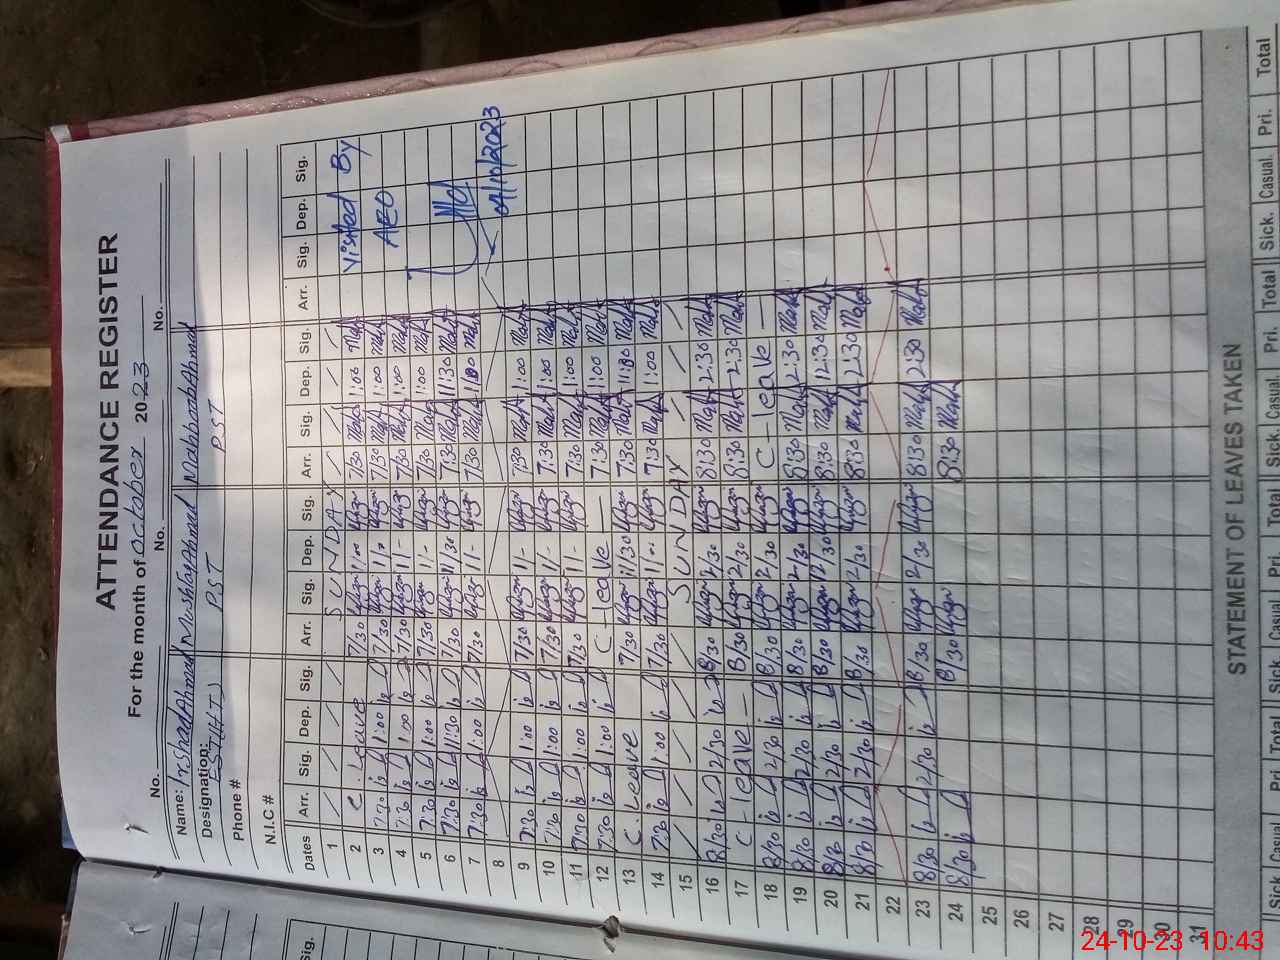 ATTENDANCE REGISTER
For the month of October 2023
No. No. No.
Name: Irshad Ahmad Mushtaq Ahmad Mahboob Ahmad
Designation: EST(HT) PST PST
Phone #
N.I.C #
Dates Arr. Sig. Dep. Sig. Arr. Sig. Dep. Sig. Arr. Sig. Dep. Sig. Arr. Sig. Dep. Sig.
1 SUNDAY
2 C. Leave 7/30 1/00 7/30 1:00 Visited By
3 7:30 1:00 7/30 1/- 7/30 1:00 AEO
4 7:30 1:00 7/30 1/- 7/30 1:00
5 7:30 1:00 7/30 1/- 7/30 1:00
6 7:30 11:30 7/30 11/30 7:30 11:30
7 7:30 1:00 7/30 1/- 7/30 1:00 04/10/2023
8
9 7:30 1:00 7/30 1/- 7/30 1:00
10 7:30 1:00 7/30 1/- 7:30 1:00
11 7:30 1:00 7/30 1/- 7:30 1:00
12 7:30 1:00 C-leave 7:30 1:00
13 C. Leave 7/30 11/30 7:30
14 7:30 1:00 7/30 1:00 7:30 1:00
15 SUNDAY
16 8/30 2/30 8/30 2/30 8:30 2:30
17 C-leave 8/30 2/30 8:30 2:30
18 8/30 2/30 8/30 2/30 C-leave
19 8/30 2/30 8/30 2/30 8:30 2:30
20 8/30 2/30 8/30 12/30 8:30 12:30
21 8/30 2/30 8/30 2/30 8:30 2:30
22
23 8/30 2/30 8/30 2/30 8:30 2:30
24 8/30 8/30 8:30
25
26
27
28
29
30
31
STATEMENT OF LEAVES TAKEN
Sick. Casual. Pri. Total Sick. Casual. Pri. Total Sick. Casual. Pri. Total Sick. Casual. Pri. Total
Sig.
24-10-23 10:43